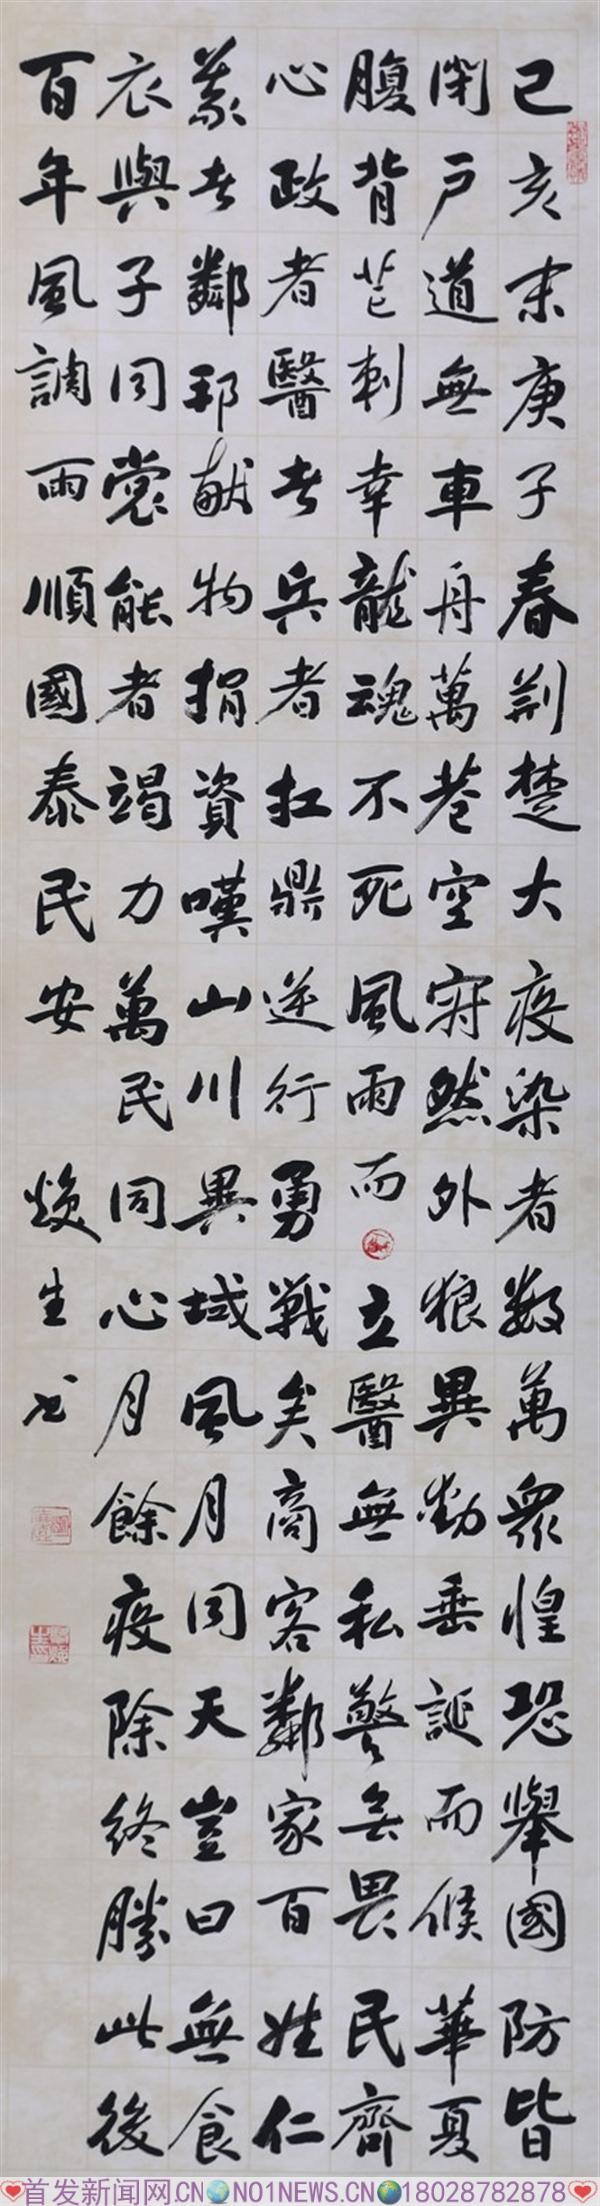 己亥末庚子春荆楚大疫染者数萬衆惶恐舉國防皆
閉户道無車舟萬巷空寂然外狼異動垂誕而候華夏
腹背芒刺幸龍魂不死風雨而立醫無私警無畏民齊
心政者醫者兵者扛鼎逆行勇戰矣商客鄰家百姓仁
義者鄰邦献物捐資嘆山川異域風月同天豈曰無食
衣與子同裳能者竭力萬民同心月餘疫除終勝此後
百年風調雨順國泰民安
焕生书
首发新闻网.CN NO1NEWS.CN 18028782878